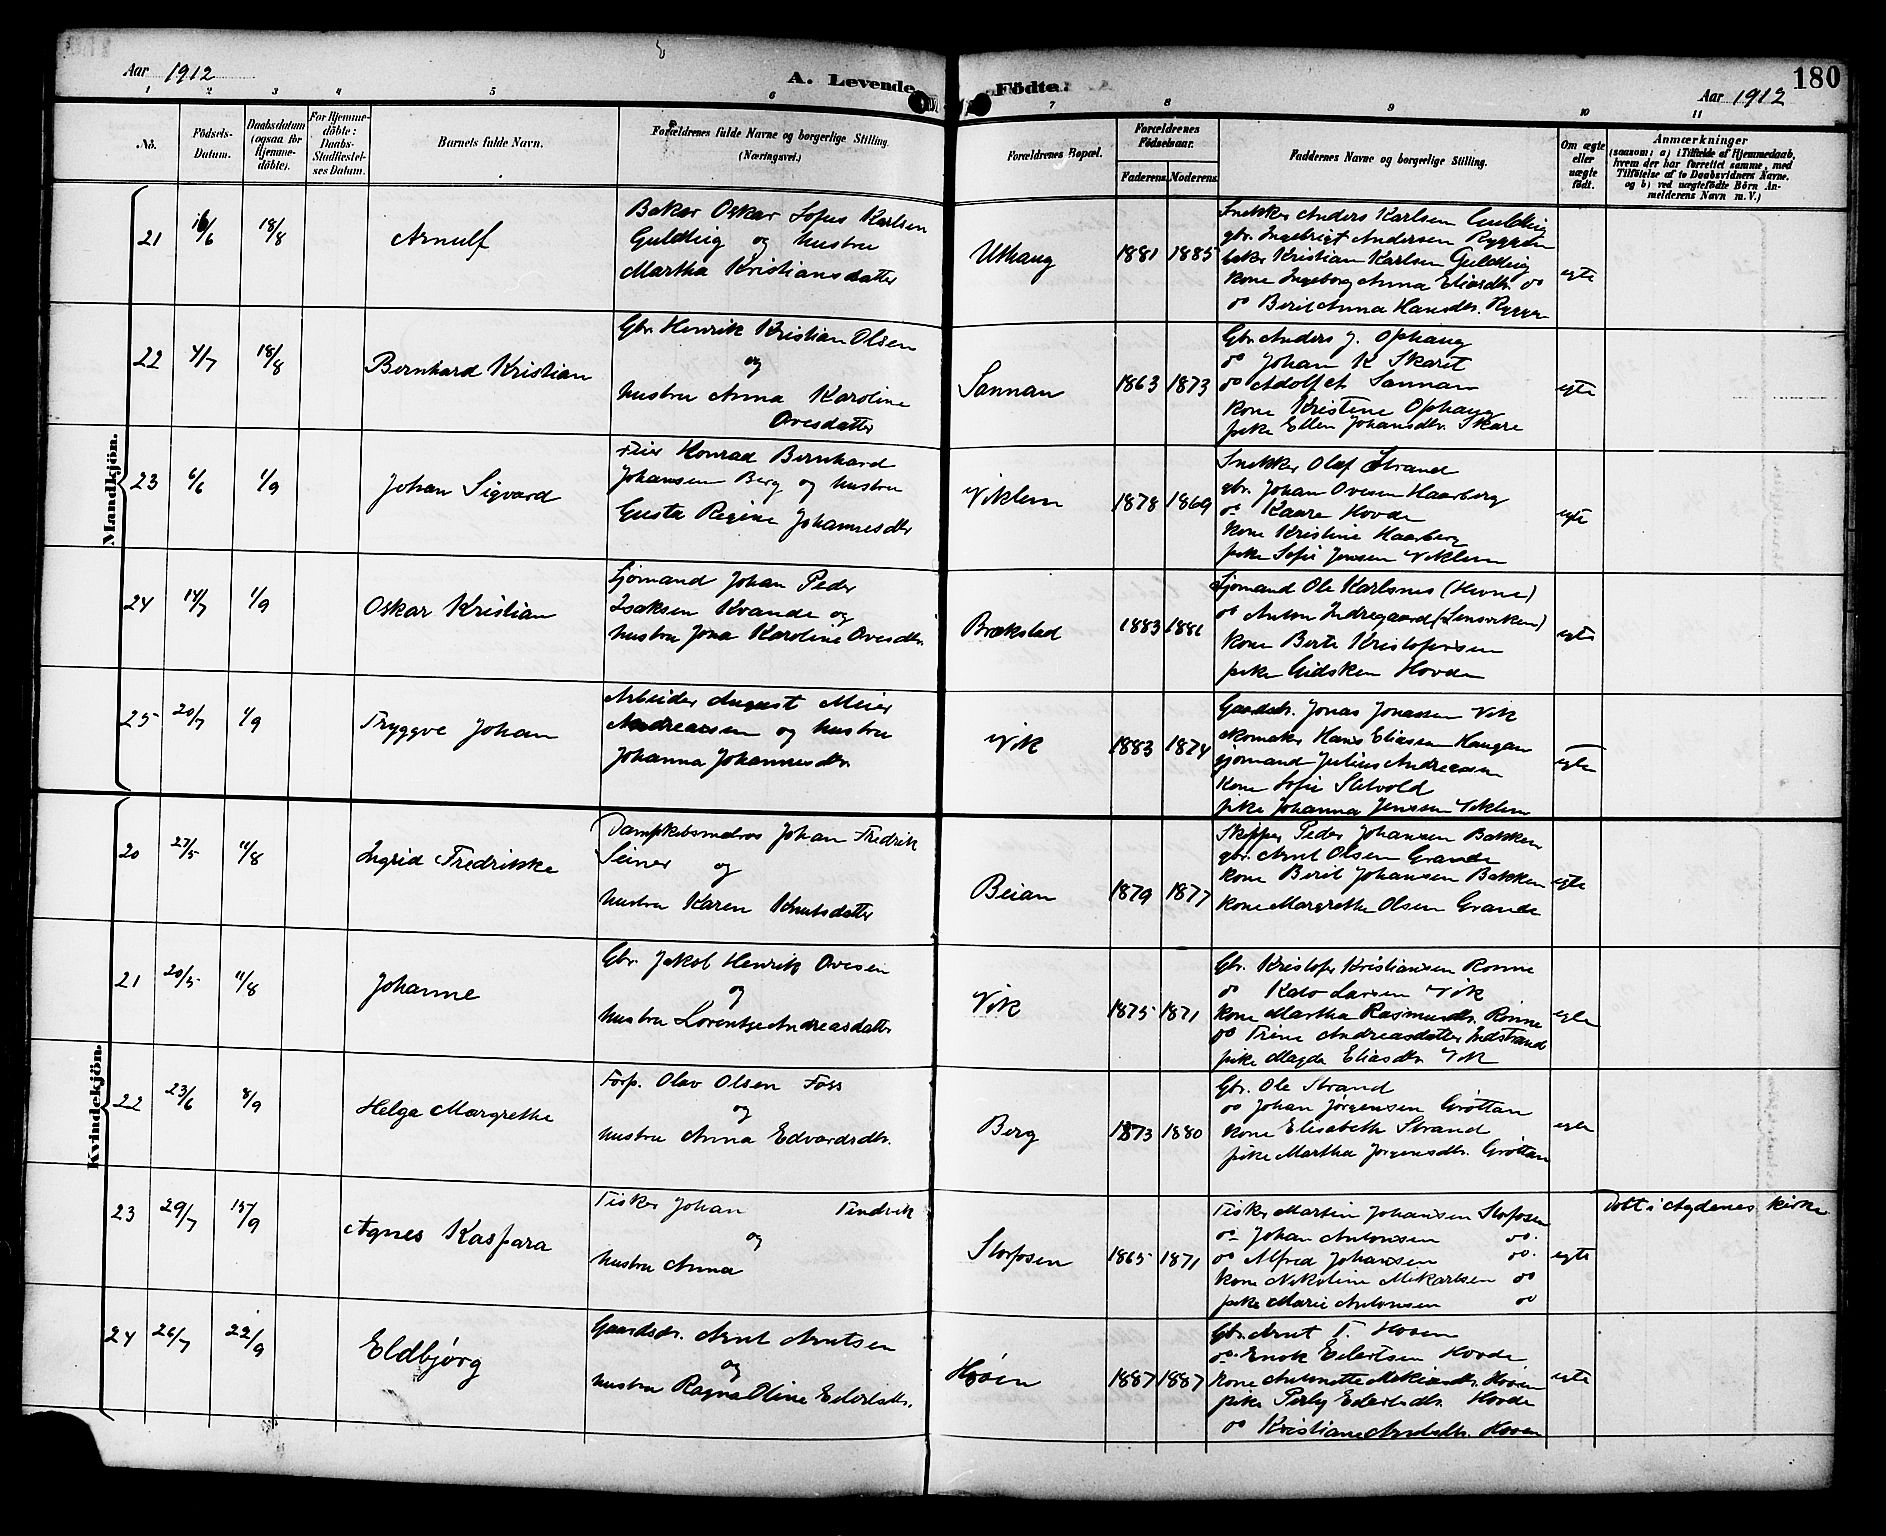 Aar 1912
A. Levende Födte.
Aar 1912
180
1 2 3 4 5 6 7 8 9 10 11
No.
Födsels-Datum.
Daabsdatum (ogsaa for Hjemme-döbte).
For Hjemme-döbte: Daabs-Stadfæstel-ses Datum.
Barnets fulde Navn.
Forældrenes fulde Navne og borgerlige Stilling. (Næringsvei.)
Forældrenes Bopæl.
Forældrenes Födselsaar.
Faderens. Moderens.
Faddernes Navne og borgerlige Stilling.
Om ægte eller uægte födt.
Anmærkninger
(saasom: a) i Tilfælde af Hjemmedaab,
hvem der har forrettet samme, med
Tilföielse af to Daabsvidners Navne.
og b) ved uægtefödte Börn An-
melderens Navn m. V.)
Mandkjön.
21 16/6 18/8 Arnulf
Baker Oskar Sofus Karlsen
Guldteig og hustru
Martha Kristiansdatter
Uthaug 1881 1885
Snekker Anders Karlsen Guldteig
gbr. Ingebrigt Andersen Ryggen
Kristian Karlsen Guldteig
kone Ingeborg Anna Eliasdtr. do
do Berit Anna Hansdtr. Rygga
egte
22 4/7 18/8 Bernhard Kristian
Gbr. Henrik Kristian Olsen
og
hustru Anna Karoline
Ovesdatter
Sannan 1863 1873
Gbr. Anders J. Ophaug
do Johan K Skaret
do Adolf A. Sannan
kone Kristine Ophaug
pike Ellen Johansdtr. Skare
egte
23 6/6 1/9 Johan Sigvard
Feier Konrad Bernhard
Johansen Berg og hustru
Gusta Regine Johannesdtr
Viklem 1878 1869
Snekker Olaf Strand
gbr. Johan Ovesen Haarberg
do Kaare Hovde
kone Kristine Haarberg
pike Sofie Jensen Viklem
egte
24 14/7 1/9 Oskar Kristian
Sjømand Johan Peder
Isaksen Kvande og
hustru Jona Karoline Ovesdtr.
Brækstad 1883 1881
Sjømand Ole Karlsnes (Hevne)
do Anton Indregaard (Lensviken)
kone Berte Kristofersen
pike Gidsken Hovde
egte
25 20/7 1/9 Tryggve Johan
Arbeider August Meier
Andreassen og hustru
Johanna Johannesdtr.
Vik 1883 1874
Gaardbr. Jonas Jonassen Vik
skomaker Hans Eliasen Haugan
sjømand Julius Andreassen
kone Sofie Sætvold
pike Johanna Jenssen Viklem
egte
Kvindekjön.
20 27/5 11/8 Ingrid Fredrikke
Dampskibsmatros Johan Fredrik
Seiner og
hustru Karen Knutsdatter
Beian 1879 1877
Skipper Peder Johansen Bakken
gbr. Arnt Olsen Grande
kone Berit Johansen Bakken
kone Margrethe Olsen Grande
egte
21 20/5 11/8 Johanne
Gbr. Jakob Henrik Ovesen
og
hustru Lorentse Andreasdatter
Vik 1875 1871
Gbr. Kristofer Kristiansen Rønne
do Kalo Larsen Vik
kone Martha Rasmusdtr. Rønne
do Trine Andreasdatter Indstrand
pike Magda Eliasdtr. Vik
egte
22 23/6 8/9 Helga Margrethe
Forp. Olav Olsen Foss
og
hustru Anna Edvardsdtr.
Berg 1873 1880
Gbr. Ole Strand
do Johan Jørgensen Grøttan
kone Elisabeth Strand
pike Martha Jørgensdtr. Grøttan
egte
23 29/7 15/9 Agnes Kaspara
Fisker Johan Tindvik
og
hustru Anna
Storfosen 1865 1871
Fisker Martin Johansen Storfosen
do Johan Antonsen do.
do Alfred Johansen do.
kone Nikoline Mikarlsen do
pike Marie Antonsen do
egte
Døbt i Agdenes kirke
24 26/7 22/9 Eldbjørg
Gaardbr. Arnt Arntsen
og
hustru Ragna Oline Eilertsdtr.
Høien 1887 1887
Gbr. Arnt T. Hoven
do. Enok Eilertsen Hovde
kone Antonette Mikiasdtr. Høien
pike Perly Eilertsdtr. Hovde
do Kristiane Arntsdtr. Hoven
egte